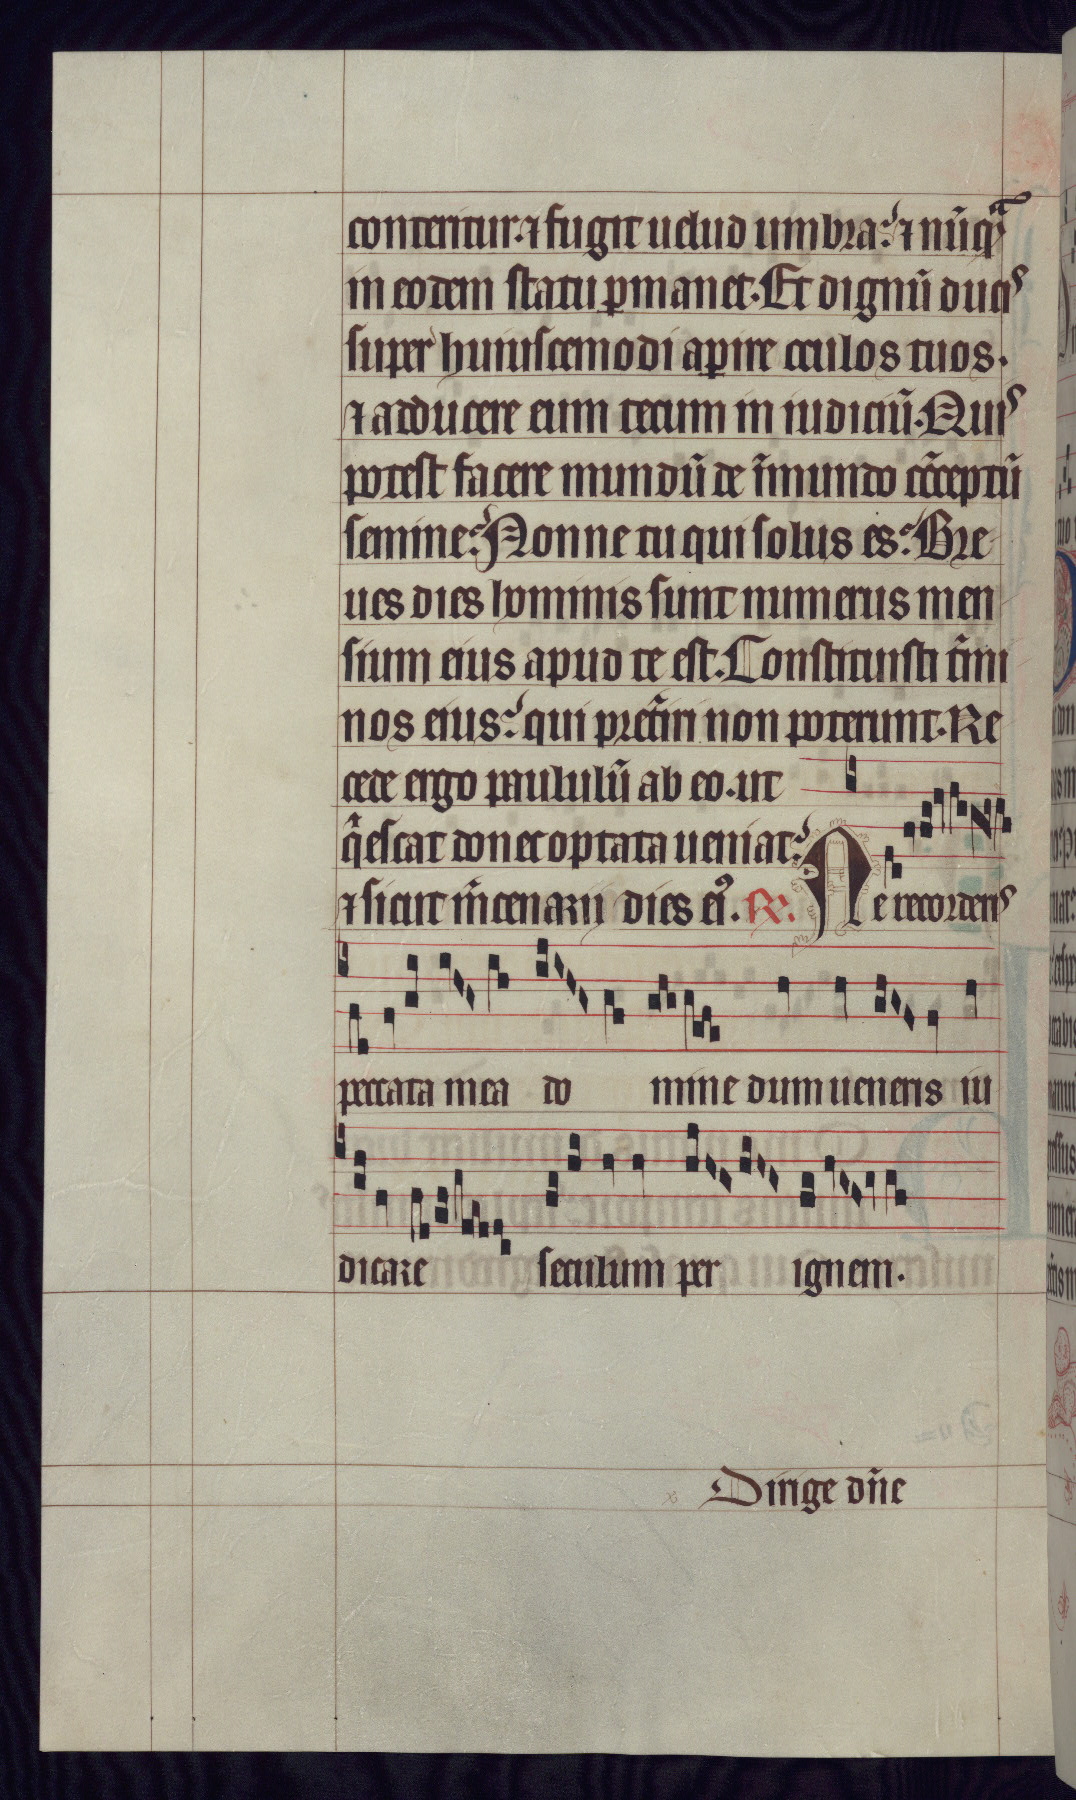 conteritur. ⁊ fugit uelud umbra: ⁊ nū̃qᵃ
in eodem statu ꝑmanet. Et dignū duciˢ
super huiuscemodi aꝑire oculos tuos.
⁊ adducere eum tecum in iudiciū. Quiˢ
potest facere mundū de īmundo cōceptū
semine: Nonne tu qui solus es: Bre
ues dies hominis sunt numerus men
sium eius apud te est. Constituisti t̃mi
nos eius: qui pret̃iri non poterunt. Re
cede ergo paululū ab eo. ut
q̇escat donec optata ueniat:
⁊ sicut m̃cenarij dies eiꝰ. ℟. Ne recorderiˢ
peccata mea do mine dum ueneris iu
dicare seculum per ignem.
Dirige dn̄e